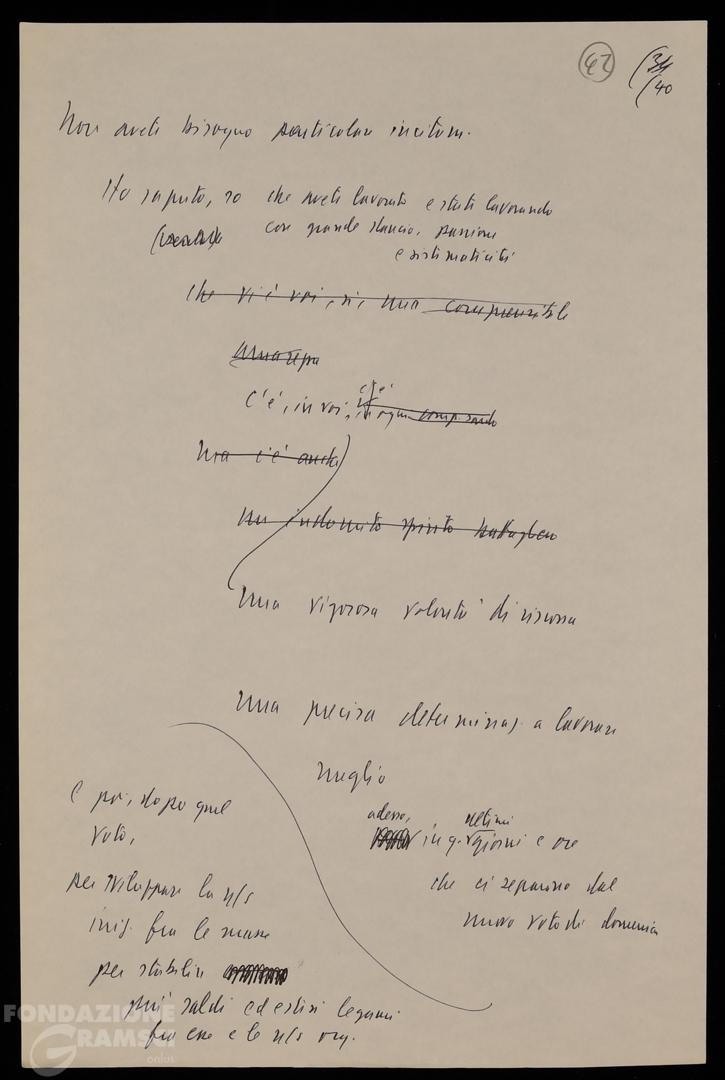 42
(34
(40
Non avete bisogno particolari incitam.
Ho saputo, so che avete lavorato e state lavorando
con grande slancio, passione
e sistematicità
che vi è voi, sì, una comprensibile
amarezza
C'è, in voi, c'è
in ogni compagno
Ma c'è anche
un indomito spirito battagliero
una vigorosa volontà di riscossa
una precisa determinaz. a lavorare
meglio
adesso, in q. ultimi giorni e ore
che ci separano dal
nuovo voto di domenica
e poi, dopo quel
voto,
per sviluppare la n/s
iniz. fra le masse
per stabilire
più saldi ed estesi legami
fra esse e le n/s org.
FONDAZIONE
GRAMSCI
onlus